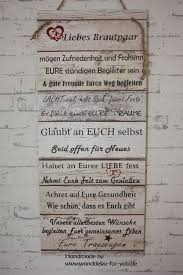 Liebes Brautpaar
mögen Zufriedenheit und Frohsinn
EURE ständigen Begleiter sein
& gute Freunde Euren Weg begleiten
LACHT
Erfüllt EUCH EURE TRÄUME
Glaubt an EUCH selbst
Seid offen für Neues
Haltet an Eurer LIEBE fest
Nehmt Euch Zeit zum Genießen
Achtet auf Eure Gesundheit
Wie schön, dass es Euch gibt
Unsere allerbesten Wünsche
begleiten Euer gemeinsames Leben
Eure Trauzeugen
Handmade by
www.wanddeko-for-you.de